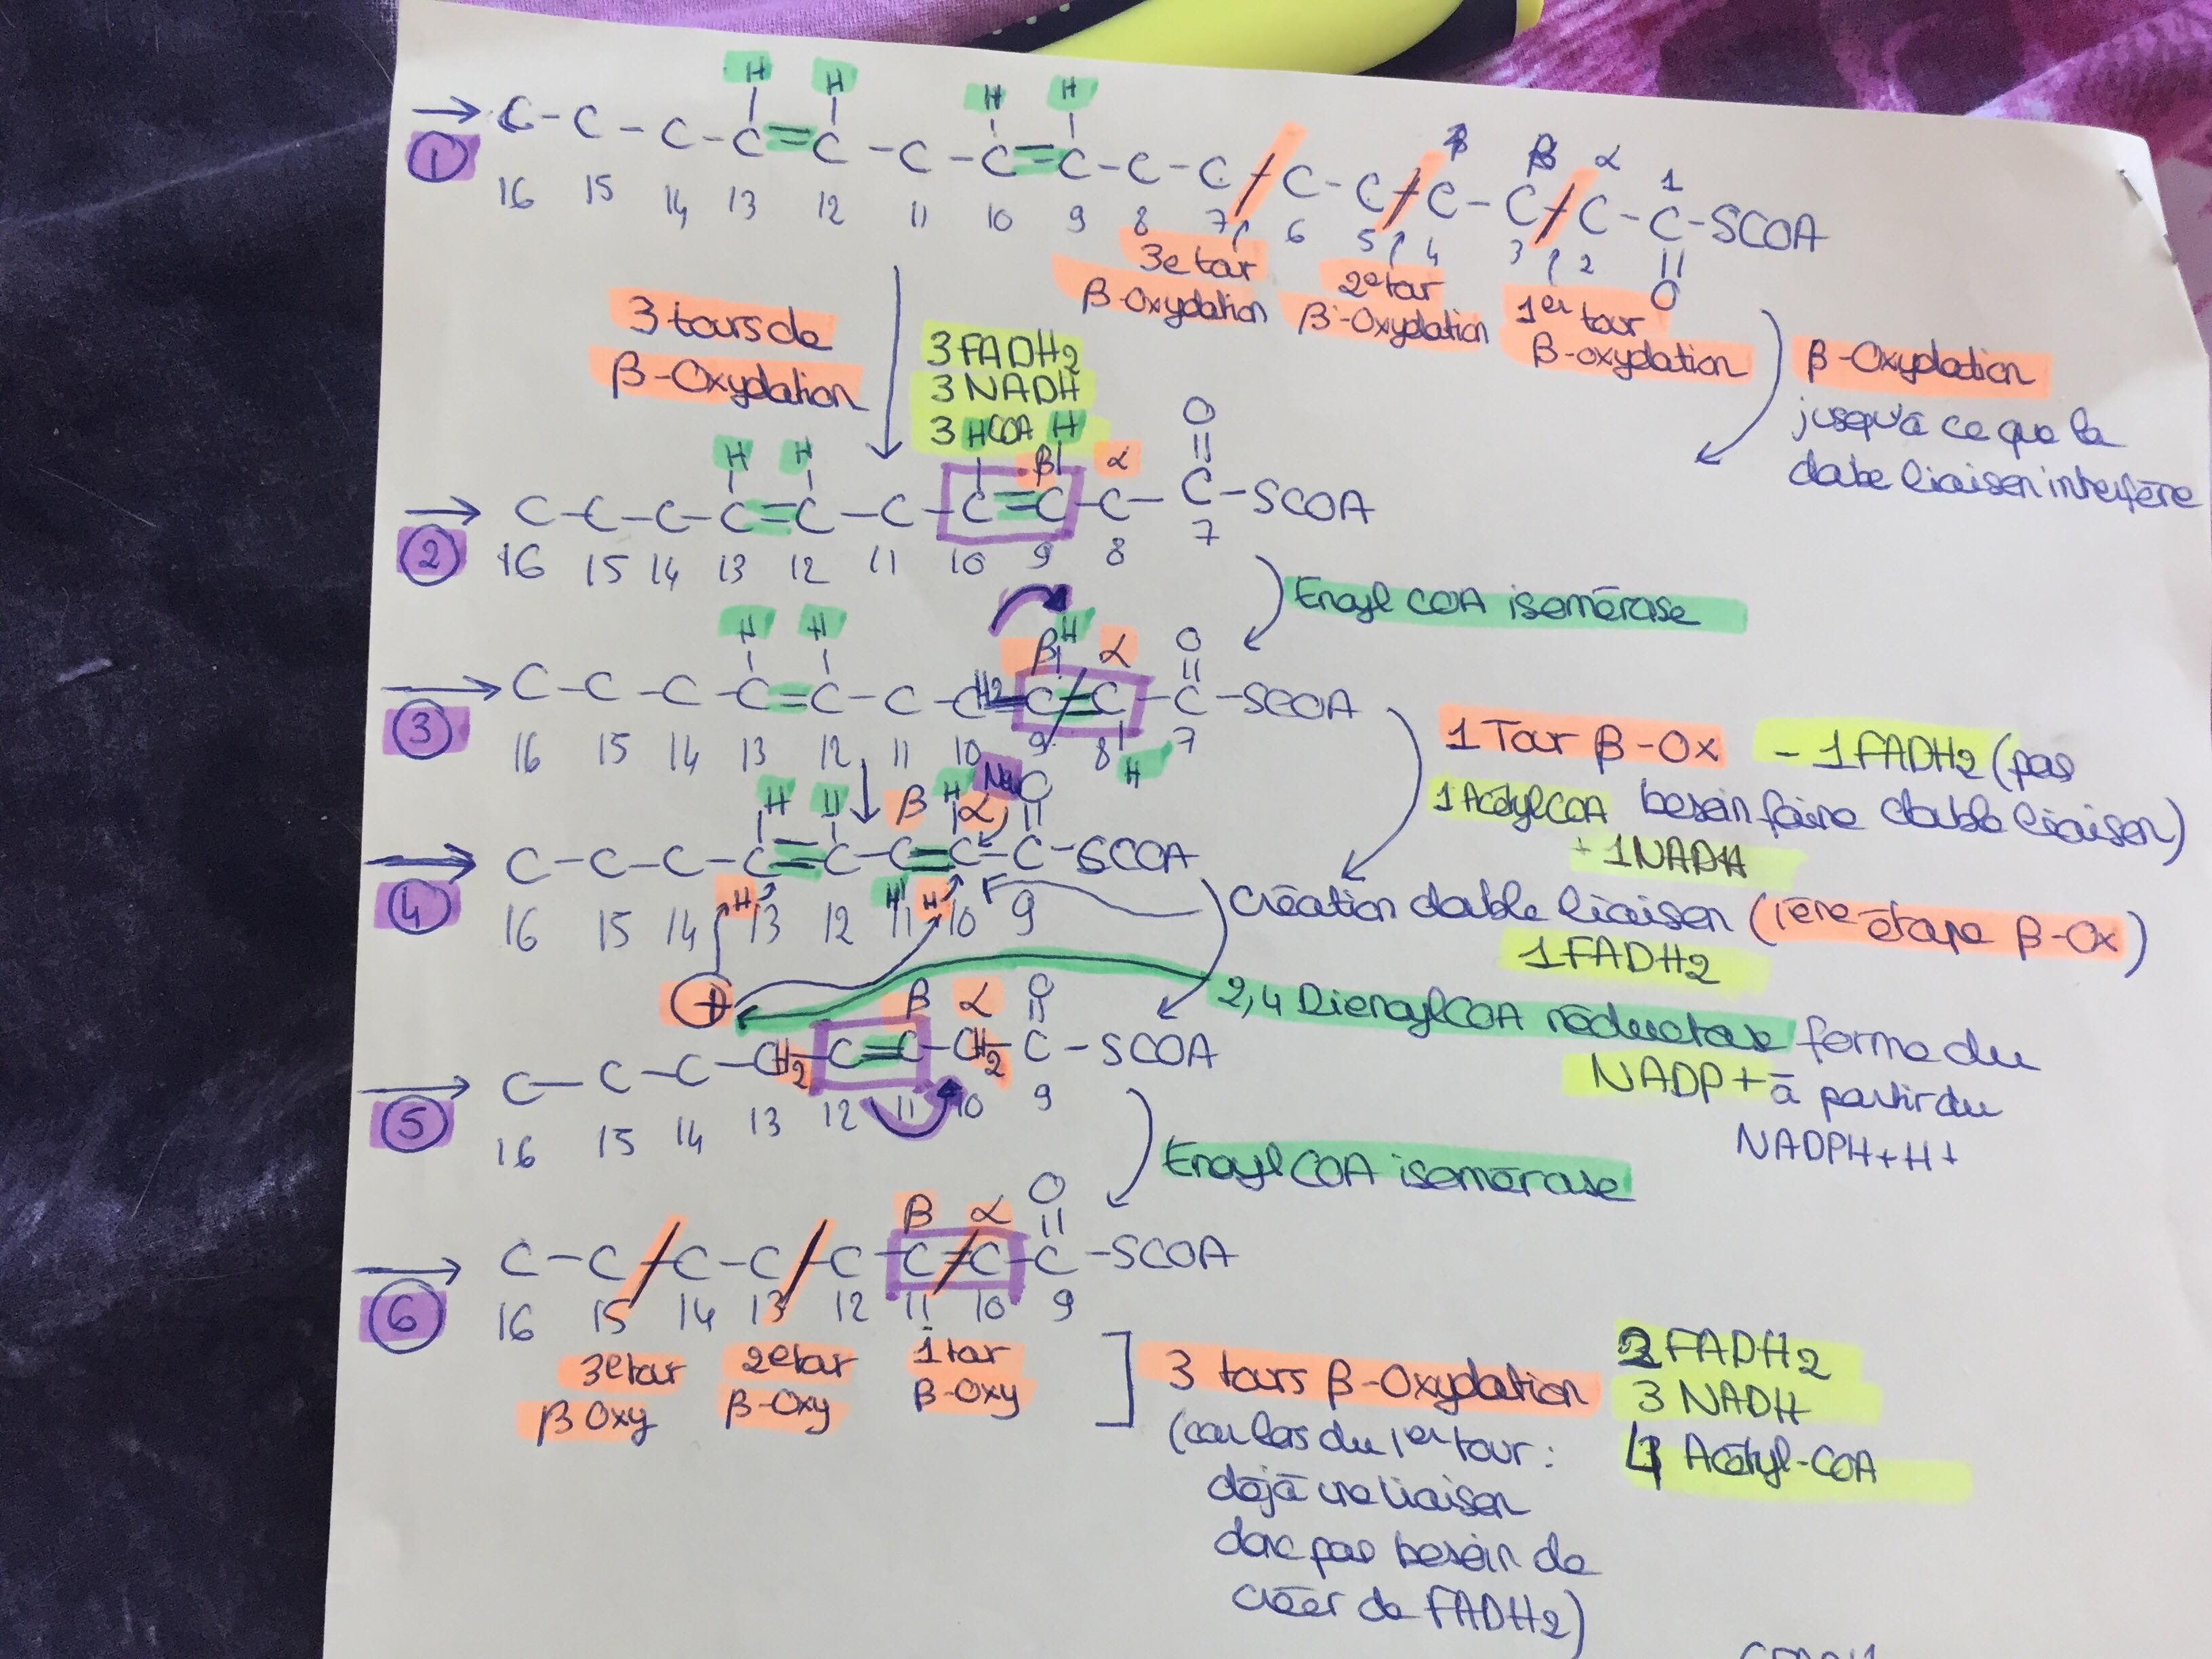 H H H H
→ C - C - C - C = C - C - C = C - C - C - C - C - C - C - C - C - SCOA
β α 1
① 16 15 14 13 12 11 10 9 8 7 6 5 4 3 2 O
3e tour β-Oxydation
2e tour β-Oxydation
1er tour β-oxydation
3 tours de
β-Oxydation
3 FADH2
3 NADH
3 COA
β-Oxydation
jusqu'à ce que la
double liaison interfère
H H H H β α O
→ C - C - C - C = C - C - C = C - C - C - SCOA
② 16 15 14 13 12 11 10 9 8 7
Enoyl COA isomérase
H H β H α O
→ C - C - C - C = C - C - CH2 - C = C - C - SCOA
③ 16 15 14 13 12 11 10 9 8 7
H
1 Tour β-Ox - 1FADH2 (pas
1 Acétyl COA besoin faire double liaison)
+ 1NADH
H H β H α O
→ C - C - C - C = C - C = C - C - SCOA
④ 16 15 14 H 13 12 H 11 H 10 9
Création double liaison (1ère étape β-Ox)
1FADH2
+
2,4 Dienoyl COA réductase forme du
NADP+ à partir du
NADPH+H+
β α O
→ C - C - C - CH2 - C = C - CH2 - C - SCOA
⑤ 16 15 14 13 12 11 10 9
Enoyl COA isomérase
β α O
→ C - C - C - C - C - C = C - C - SCOA
⑥ 16 15 14 13 12 11 10 9
3e tour β Oxy
2e tour β-Oxy
1 tour β-Oxy
3 tours β-Oxydation
(car lors du 1er tour :
déjà une liaison
donc pas besoin de
créer de FADH2)
2 FADH2
3 NADH
4 Acétyl-COA